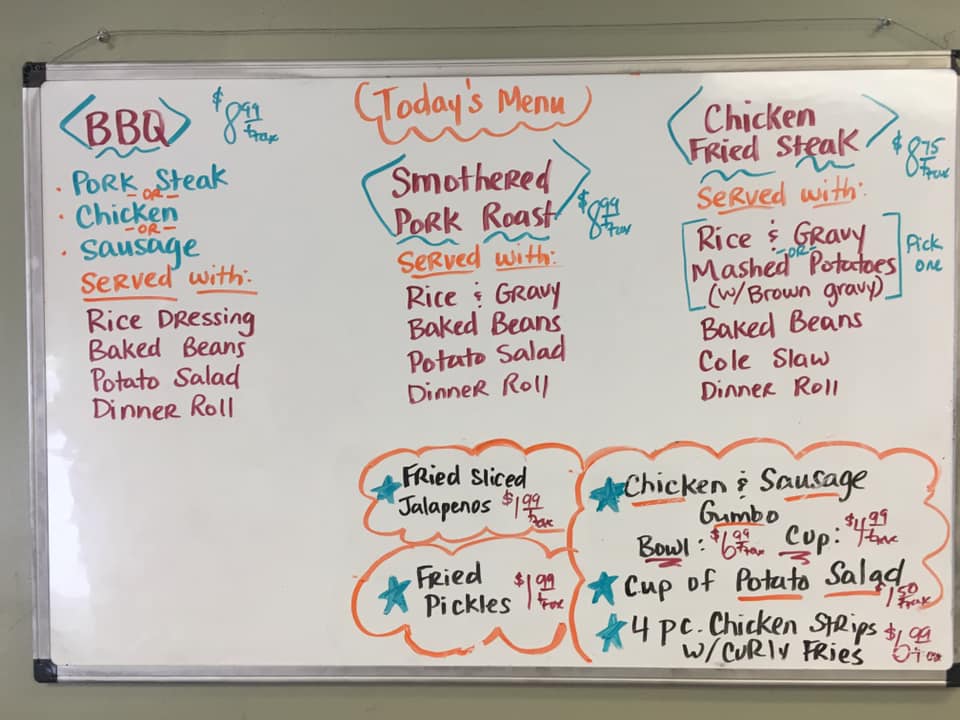 Today's Menu
BBQ $8.99 + tax
• Pork Steak
-OR-
• Chicken
-OR-
• Sausage
Served with:
Rice Dressing
Baked Beans
Potato Salad
Dinner Roll
Smothered
Pork Roast $8.99 + tax
Served with:
Rice & Gravy
Baked Beans
Potato Salad
Dinner Roll
Chicken
Fried Steak $8.75 + tax
Served with:
Rice & Gravy
-OR-
Mashed Potatoes
(w/Brown gravy)
Pick
one
Baked Beans
Cole Slaw
Dinner Roll
Fried Sliced
Jalapenos $1.99 + tax
Fried
Pickles $1.99 + tax
Chicken & Sausage
Gumbo
Bowl: $6.99 + tax Cup: $4.99 + tax
Cup of Potato Salad
$1.50 + tax
4 pc. Chicken Strips $6.99 + tax
w/ Curly Fries